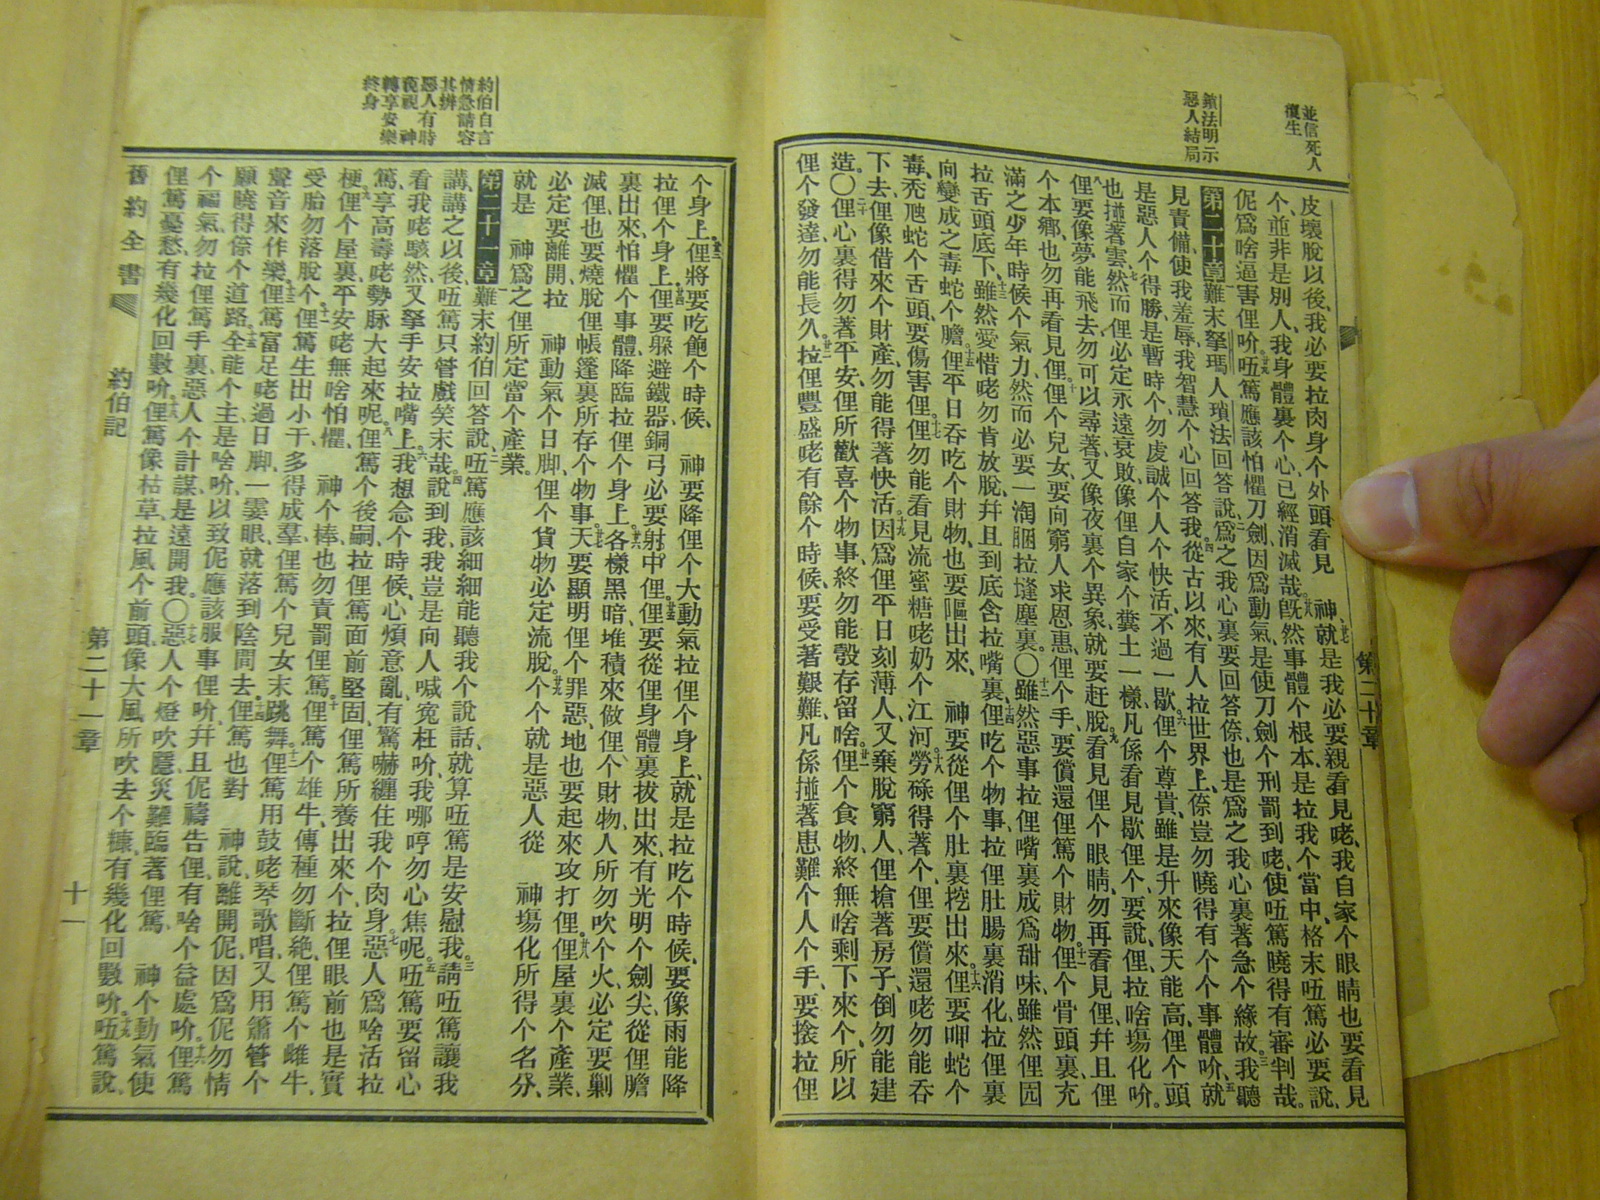 並信死人
復生
鎖法明示
惡人結局
第二十章
皮壞脫以後、我必要拉肉身个外頭看見　神就是我必要親看見咾、我自家个眼睛也要看見
个並非是別人、我身體裏个心已經消滅哉。旣然事體个根本是拉我个當中、格末㕶篤必要說、
伲爲啥逼害俚吤、㕶篤應該怕懼刀劍、因爲動氣是使刀劍个刑罰到咾、使㕶篤曉得有審判哉。
第二十章難末拏瑪人瑣法回答說、爲之我心裏要回答倷也是爲之我心裏著急个緣故。我聽
見責備、使我羞辱、我智慧个心回答我、從古以來、有人拉世界上、倷豈勿曉得有个个事體吤、就
是惡人个得勝、是暫時个、勿虔誠个人个快活不過一歇。俚个尊貴、雖是升來像天能高、俚个頭
也撞著雲、然而俚必定永遠衰敗、像俚自家个糞土一樣、凡係看見歇俚个、要說、俚拉啥場化吤。
俚要像夢能飛去、勿可以尋著、又像夜裏个異象、就要赶脫。看見俚个眼睛、勿再看見俚、幷且俚
个本鄉、也勿再看見俚。俚个兒女、要向窮人求恩惠、俚个手、要償還俚篤个財物。俚个骨頭裏、充
滿之少年時候个氣力、然而必要一淘𦡬拉塳塵裏。〇雖然惡事拉俚嘴裏成爲甜味、雖然俚囥
拉舌頭底下、雖然愛惜咾勿肯放脫、幷且到底含拉嘴裏、俚吃个物事、拉俚肚腸裏消化、拉俚裏
向變成之毒蛇个膽。俚平日吞吃个財物、也要嘔出來、　神要從俚个肚裏挖出來。俚要呷蛇个
毒、禿虺蛇个舌頭、要傷害俚。俚勿能看見流蜜糖咾奶个江河。勞碌得著个、俚要償還咾勿能吞
下去、俚像借來个財產、勿能得著快活。因爲俚平日刻薄人、又棄脫窮人、俚搶著房子、倒勿能建
造。〇俚心裏得勿著平安、俚所歡喜个物事、終勿能彀存留啥、俚个食物、終無啥剩下來个、所以
俚个發達、勿能長久。拉俚豐盛咾有餘个時候、要受著艱難、凡係撞著患難个人个手、要搇拉俚
約伯自言
情急請容
其辨
惡人有時
藐視　神
轉享安樂
終身
个身上。俚將要吃飽个時候、　神要降俚个大動氣拉俚个身上、就是拉吃个時候、要像雨能降
拉俚个身上。俚要躱避鐵器、銅弓必要射中俚。俚要從俚身體裏拔出來、有光明个劍尖、從俚膽
裏出來、怕懼个事體降臨拉俚个身上。各樣黑暗、堆積來做俚个財物、人所勿吹个火、必定要剿
滅俚、也要燒脫俚帳篷裏所存个物事。天要顯明俚个罪惡、地也要起來攻打俚。俚屋裏个產業、
必定要離開、拉　神動氣个日脚、俚个貨物必定流脫。个个就是惡人從　神場化所得个名分、
就是　神爲之俚所定當个產業。
第二十一章難末約伯回答說、㕶篤應該細細能聽我个說話、就算㕶篤是安慰我。請㕶篤讓我
講、講之以後、㕶篤只管戲笑末哉。說到我、我豈是向人喊寃枉吤、我哪哼勿心焦呢。㕶篤要留心
看我咾駭然、又拏手安拉嘴上。我想念个時候、心煩意亂、有驚嚇纏住我个肉身。惡人爲啥活拉、
篤、享高壽咾勢脉大起來呢。俚篤个後嗣、拉俚篤面前堅固、俚篤所養出來个、拉俚眼前也是實
梗。俚个屋裏、平安咾無啥怕懼、　神个棒、也勿責罰俚篤。俚篤个雄牛、傳種勿斷絕、俚篤个雌牛、
受胎勿落脫个。俚篤生出小干、多得成羣、俚篤个兒女末跳舞。俚篤用鼓咾琴歌唱、又用簫管个
聲音來作樂。俚篤富足咾過日脚、一霎眼、就落到陰間去。俚篤也對　神說、離開伲、因爲伲勿情
願曉得倷个道路。全能个主是啥吤、以致伲應該服事俚吤、幷且伲禱告俚、有啥个益處吤。俚篤
个福氣、勿拉俚篤手裏、惡人个計謀、是遠開我。〇惡人个燈吹隱、災難臨著俚篤、　神个動氣使
俚篤憂愁、有幾化回數吤。俚篤像枯草、拉風个前頭、像大風所吹去个糠、有幾化回數吤。㕶篤說、
舊約全書
約伯記
第二十一章
十一